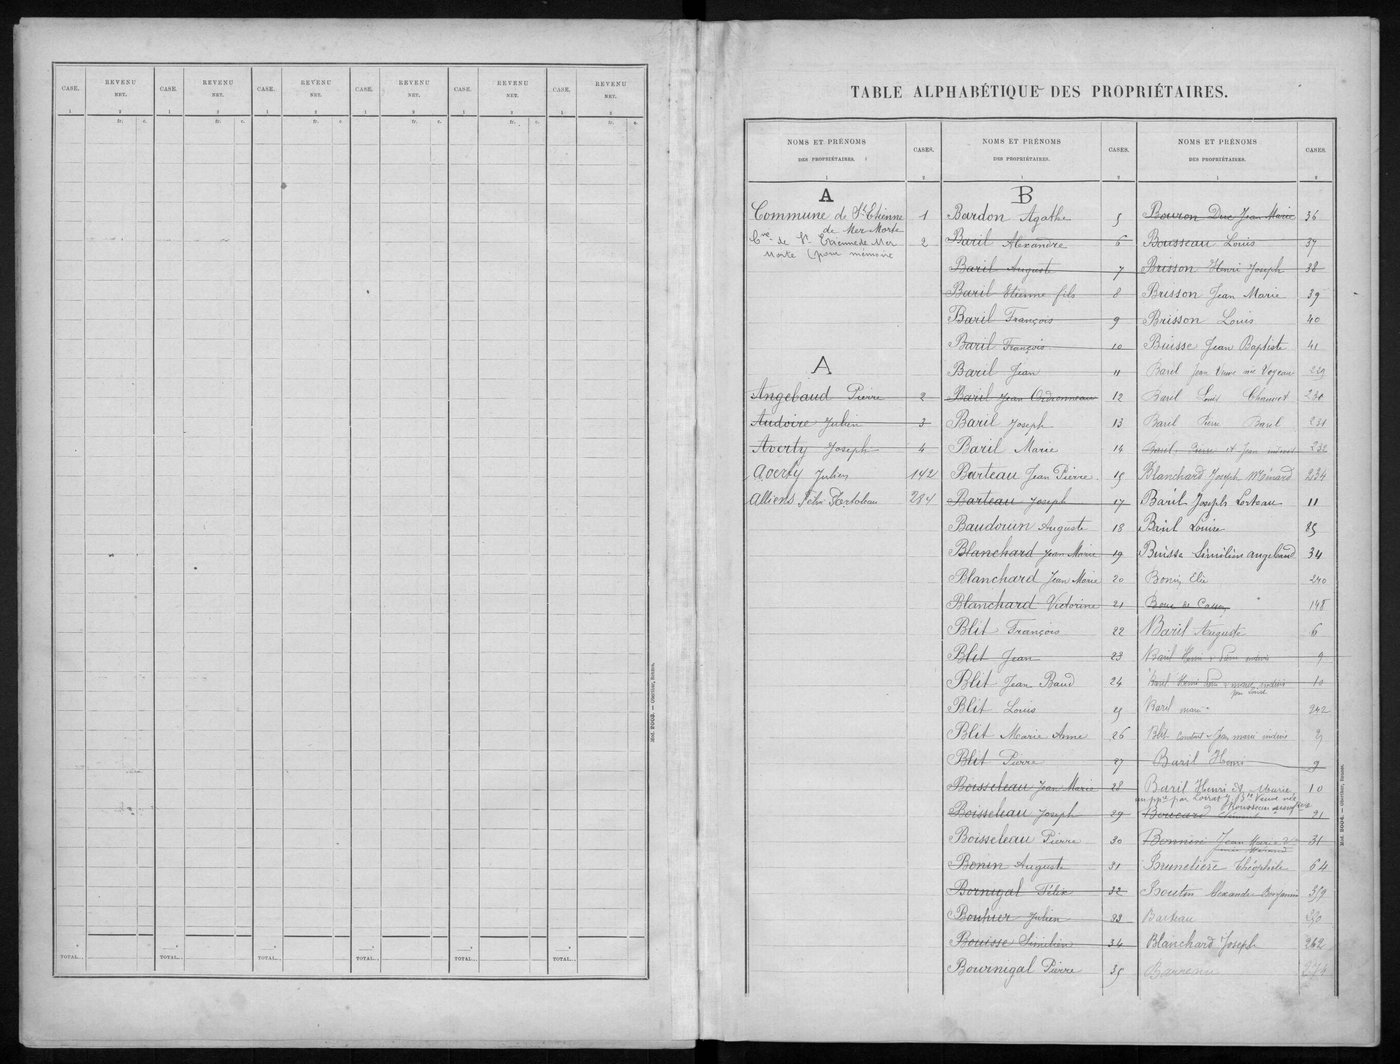 CASE. REVENU NET. CASE. REVENU NET. CASE. REVENU NET. CASE. REVENU NET. CASE. REVENU NET. CASE. REVENU NET.
1 2 1 2 1 2 1 2 1 2 1 2
fr. c. fr. c. fr. c. fr. c. fr. c. fr. c.
TOTAL.. TOTAL.. TOTAL.. TOTAL.. TOTAL.. TOTAL..
Mod. 2003. — Oberthur, Rennes.
TABLE ALPHABÉTIQUE DES PROPRIÉTAIRES.
NOMS ET PRÉNOMS
DES PROPRIÉTAIRES.
CASES.
1 2
A
Commune de St Etienne 1
de Mer Morte
Cne de St Etienne de Mer 2
Morte (pour mémoire
A
Angebaud Pierre 2
Audoire Julien 3
Averty Joseph 4
Averty Julien 142
Alliens 214
NOMS ET PRÉNOMS
DES PROPRIÉTAIRES.
CASES.
1 2
B
Bardon Agathe 5
Baril Alexandre 6
Baril Auguste 7
Baril Etienne fils 8
Baril François 9
Baril François 10
Baril Jean 11
Baril Jean Ordronneau 12
Baril Joseph 13
Baril Marie 14
Barteau Jean Pierre. 15
Barteau Joseph 17
Baudouin Auguste 18
Blanchard Jean Marie 19
Blanchard Jean Marie 20
Blanchard Victorine 21
Blit François 22
Blit Jean 23
Blit Jean Baud 24
Blit Louis 25
Blit Marie Anne 26
Blit Pierre 27
Boisseleau Jean Marie 28
Boisseleau Joseph 29
Boisseleau Pierre 30
Bonin Auguste 31
Bornigal Félix 32
Bouhier Julien 33
Bouisse Similien 34
Bournigal Pierre 35
NOMS ET PRÉNOMS
DES PROPRIÉTAIRES.
CASES.
1 2
Bouron Duc Jean Marie 36
Bousseau Louis 37
Brisson Henri Joseph 38
Brisson Jean Marie 39
Brisson Louis 40
Buisse Jean Baptiste 41
Baril Jean Veuve née Voyeau 229
Baril Louis Chauvet 230
Baril Pierre Baril 231
Baril Pierre et Jean indivis 232
Blanchard Joseph Ménard 234
Baril Joseph Lorteau 11
Baril Louise 25
Buisse Similien angebaud 34
Bonin Elie 240
148
Baril Auguste 6
Baril Henri indivis 9
Baril Henri indivis 10
Baril marie 242
Blit Jean marie indivis
Baril Henri 9
Baril Henri Marie 10
21
Bonnin Jean Marie 31
Brunetière Théophile 64
Bouton Alexandre Benjamin 359
Barteau 250
Blanchard Joseph 262
Barreau 274
Mod. 2004. — Oberthur, Rennes.